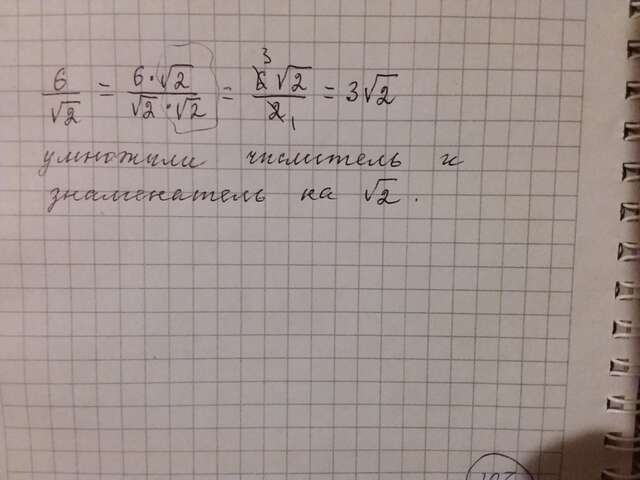 6/√2 = 6·√2/√2·√2 = 6√2/2 = 3√2
3
1
умножили числитель и
знаменатель на √2.